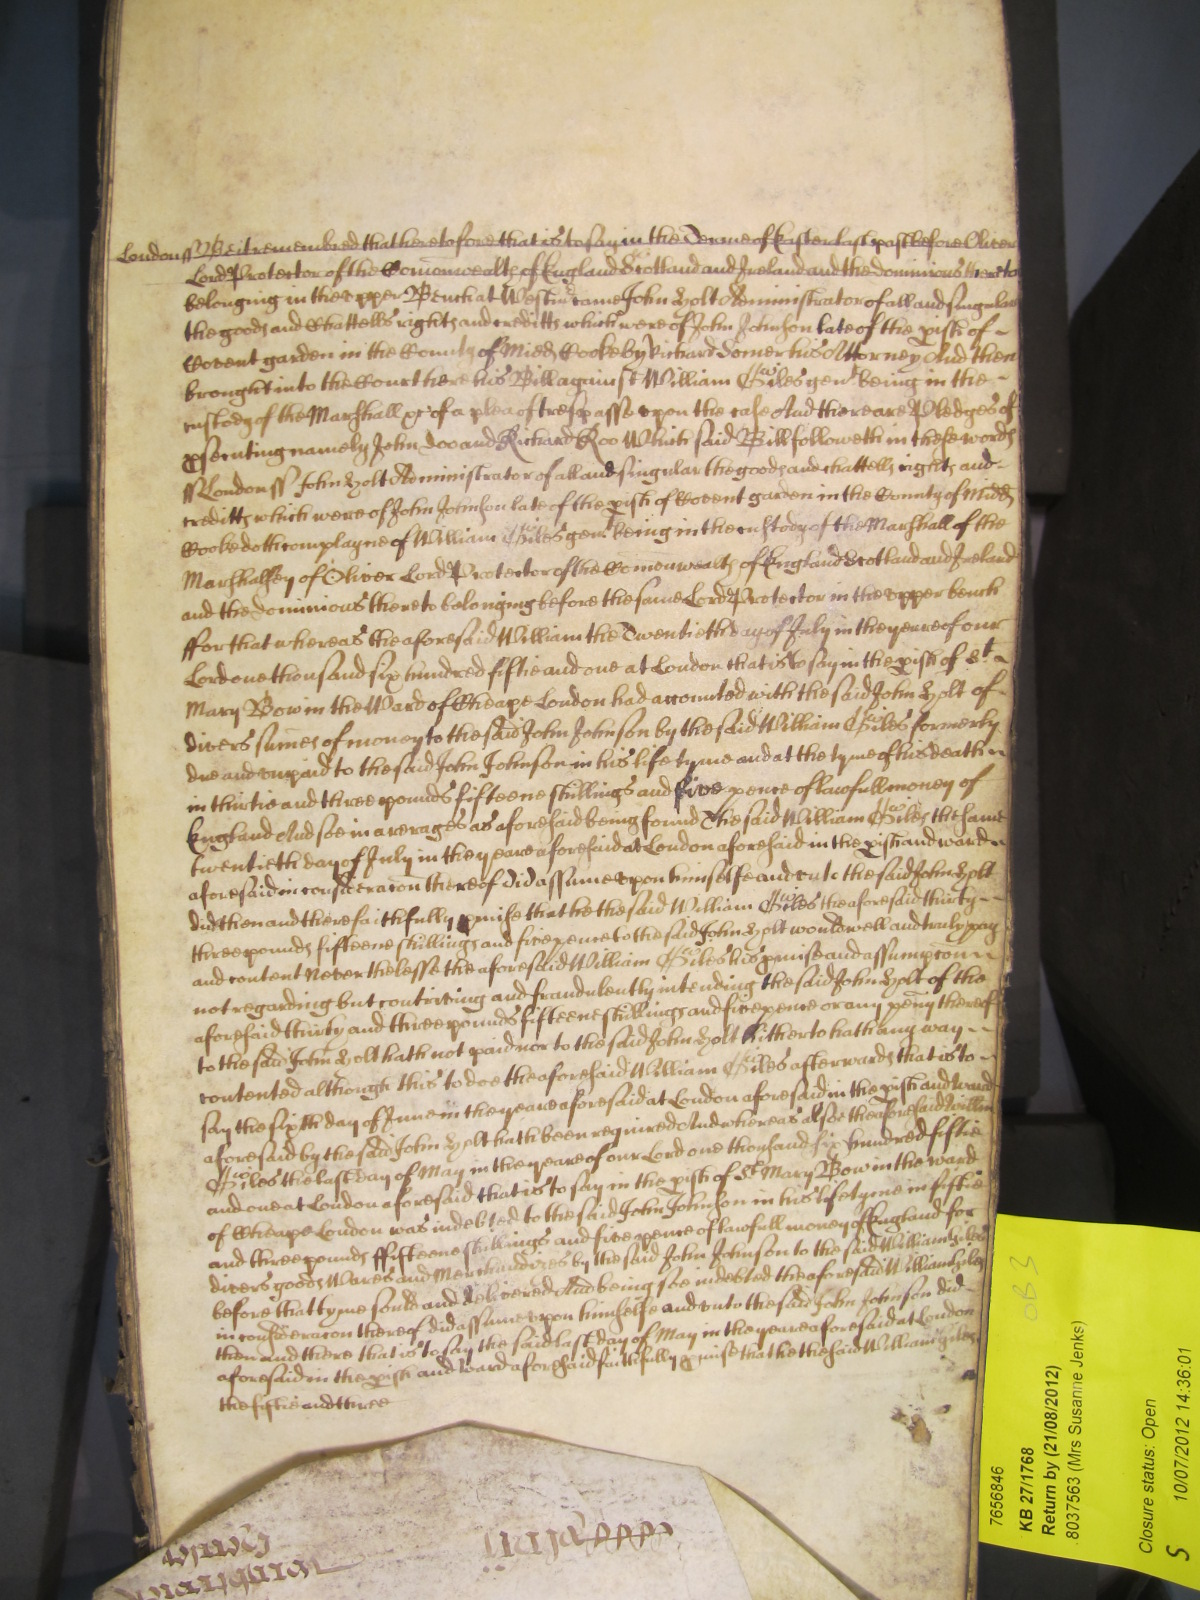 London ss Be it remembred that heretofore that is to say in the Terme of Easter last past before Oliver
Lord Protector of the Comonwealth of England Scotland and Ireland and the dominions thereto
belonging in the upper Bench at Westmr came John Holt Administrator of all and singular
the goods and Chattells rights and creditts which were of John Johnson late of the pish of
Covent garden in the County of Midd Cooke by Richard his Attorney And then
brought into the Court here his Bill against William Giles gent being in the
custody of the Marshall &c of a plea of trespasse upon the case And there are Pledges of
psecuting namely John Doo and Richard Roo Which said Bill followeth in these words
ss London ss John Holt Administrator of all and singular the goods and chattells rights and
creditts which were of John Johnson late of the pish of Covent garden in the County of Midd
Cooke doth complayne of William Giles gent being in the custody of the Marshall of the
Marshallsey of Oliver Lord Protector of the Comonwealth of England Scotland and Ireland
and the dominions thereto belonging before the same Lord Protector in the upper bench
ffor that whereas the aforesaid William the Twentieth day of July in the yeare of our
Lord one thousand six hundred fiftie and one at London that is to say in the pish of St
Mary Bow in the Ward of Cheape London had accounted with the said John Holt of
divers sumes of money to the said John Johnson by the said William Giles formerly
due and unpaid to the said John Johnson in his life tyme and at the tyme of his death
in thirtie and three pounds fifteene shillings and five pence of lawfull money of
England And soe in arerages as aforesaid being found The said William Giles the same
twentieth day of July in the yeare aforesaid at London aforesaid in the pish and ward
aforesaid in consideracon thereof did assume upon himselfe and unto the said John Holt
did then and there faithfully pmise that he the said William Giles the aforesaid thirty
three pounds fifteene shillings and five pence to the said John Holt would well and truly pay
and content Neverthelesse the aforesaid William Giles his pmise and assumpcon
not regarding but contriving and fraudulently intending the said John Holt of the
aforesaid thirty and three pounds fifteene shillings and five pence or any peny thereof
to the said John Holt hath not paid nor to the said John Holt hitherto hath any way
contented although this to doe the aforesaid William Giles afterwards that is to
say the sixth day of June in the yeare aforesaid at London aforesaid in the pish and ward
aforesaid by the said John Holt hath been required And whereas alsoe the aforesaid Willm
Giles the last day of May in the yeare of our Lord one thousand six hundred fiftie
and one at London aforesaid that is to say in the pish of St Mary Bow in the ward
of Cheape London was indebted to the said John Johnson in his life tyme in fiftie
and three pounds ffifteene shillings and five pence of lawfull money of England for
divers goods Wares and Merchandizes by the said John Johnson to the said William Giles
before that tyme sould and delivered And being soe indebted the aforesaid William Giles
in consideracon thereof did assume upon himselfe and unto the said John Johnson did
then and there that is to say the said last day of May in the yeare aforesaid at London
aforesaid in the pish and ward aforesaid faithfully pmise that he the said William Giles
the fiftie and three
7656846
KB 27/1768
Return by (21/08/2012)
8037563 (Mrs Susanne Jenks)
OB 3
Closure status: Open
10/07/2012 14:36:01
S